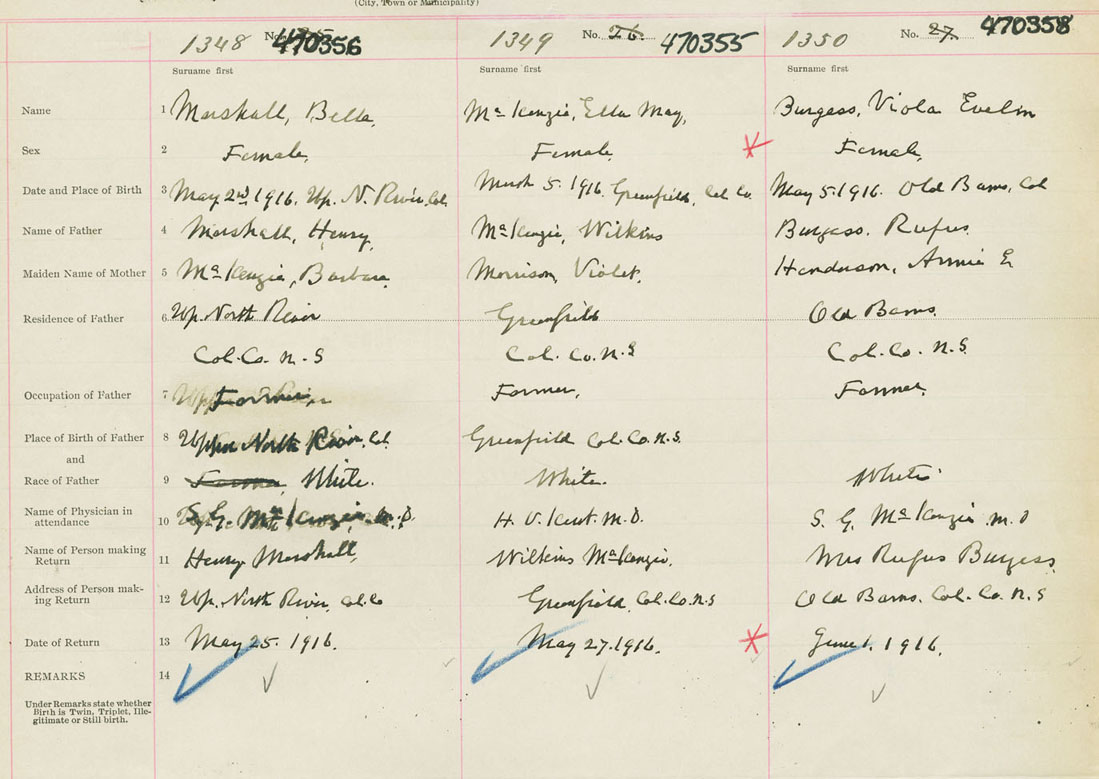 (City, Town or Municipality)
1348 No. 470356 1349 No. 26. 470355 1350 No. 27. 470358
Surname first Surname first Surname first
Name 1 Marshall, Bella, McKenzie, Ella May, Burgess, Viola Evelin
Sex 2 Female, Female, Female,
Date and Place of Birth 3 May 2nd, 1916, Up. N. River, Col. March 5. 1916. Greenfield, Col. Co. May 5. 1916. Old Barns, Col
Name of Father 4 Marshall, Henry, McKenzie, Wilkins Burgess. Rufus.
Maiden Name of Mother 5 McKenzie, Barbara, Morrison, Violet, Henderson, Annie E
Residence of Father 6 Up. North River Greenfield Old Barns.
Col. Co. N. S Col. Co. N. S Col. Co. N. S.
Occupation of Father 7 Farmer, Farmer, Farmer
Place of Birth of Father 8 Upper North River, Col. Greenfield Col. Co. N. S.
and
Race of Father 9 Farmer, White. White. White
Name of Physician in
attendance 10 S. G. McKenzie, M. D. H. V. Kent. M. D. S. G. McKenzie M. D
Name of Person making
Return 11 Henry Marshall, Wilkins McKenzie. Mrs Rufus Burgess.
Address of Person mak-
ing Return 12 Up. North River, Col. Co Greenfield, Col. Co. N. S Old Barns. Col. Co. N. S
Date of Return 13 May 25. 1916. May 27. 1916. June 1. 1916.
REMARKS 14
Under Remarks state whether
Birth is Twin, Triplet, Ille-
gitimate or Still birth.